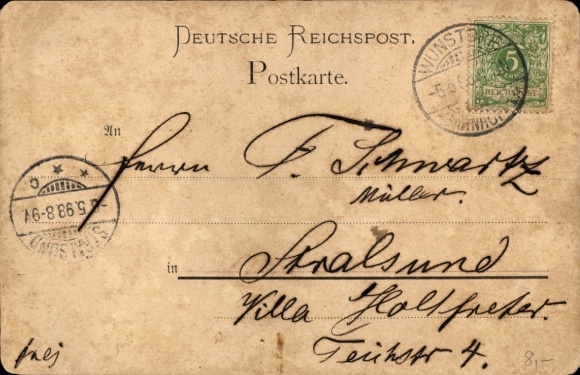 DEUTSCHE REICHSPOST.
Postkarte.
WUNSTORF
5
REICHSPOST
BAHNHOF
An
Herrn F. Schwartz
Müller.
STRALSUND
-6.5.98.8-9V.
C
in Stralsund
Villa Holtfreter.
Teichstr 4.
frei
8,-